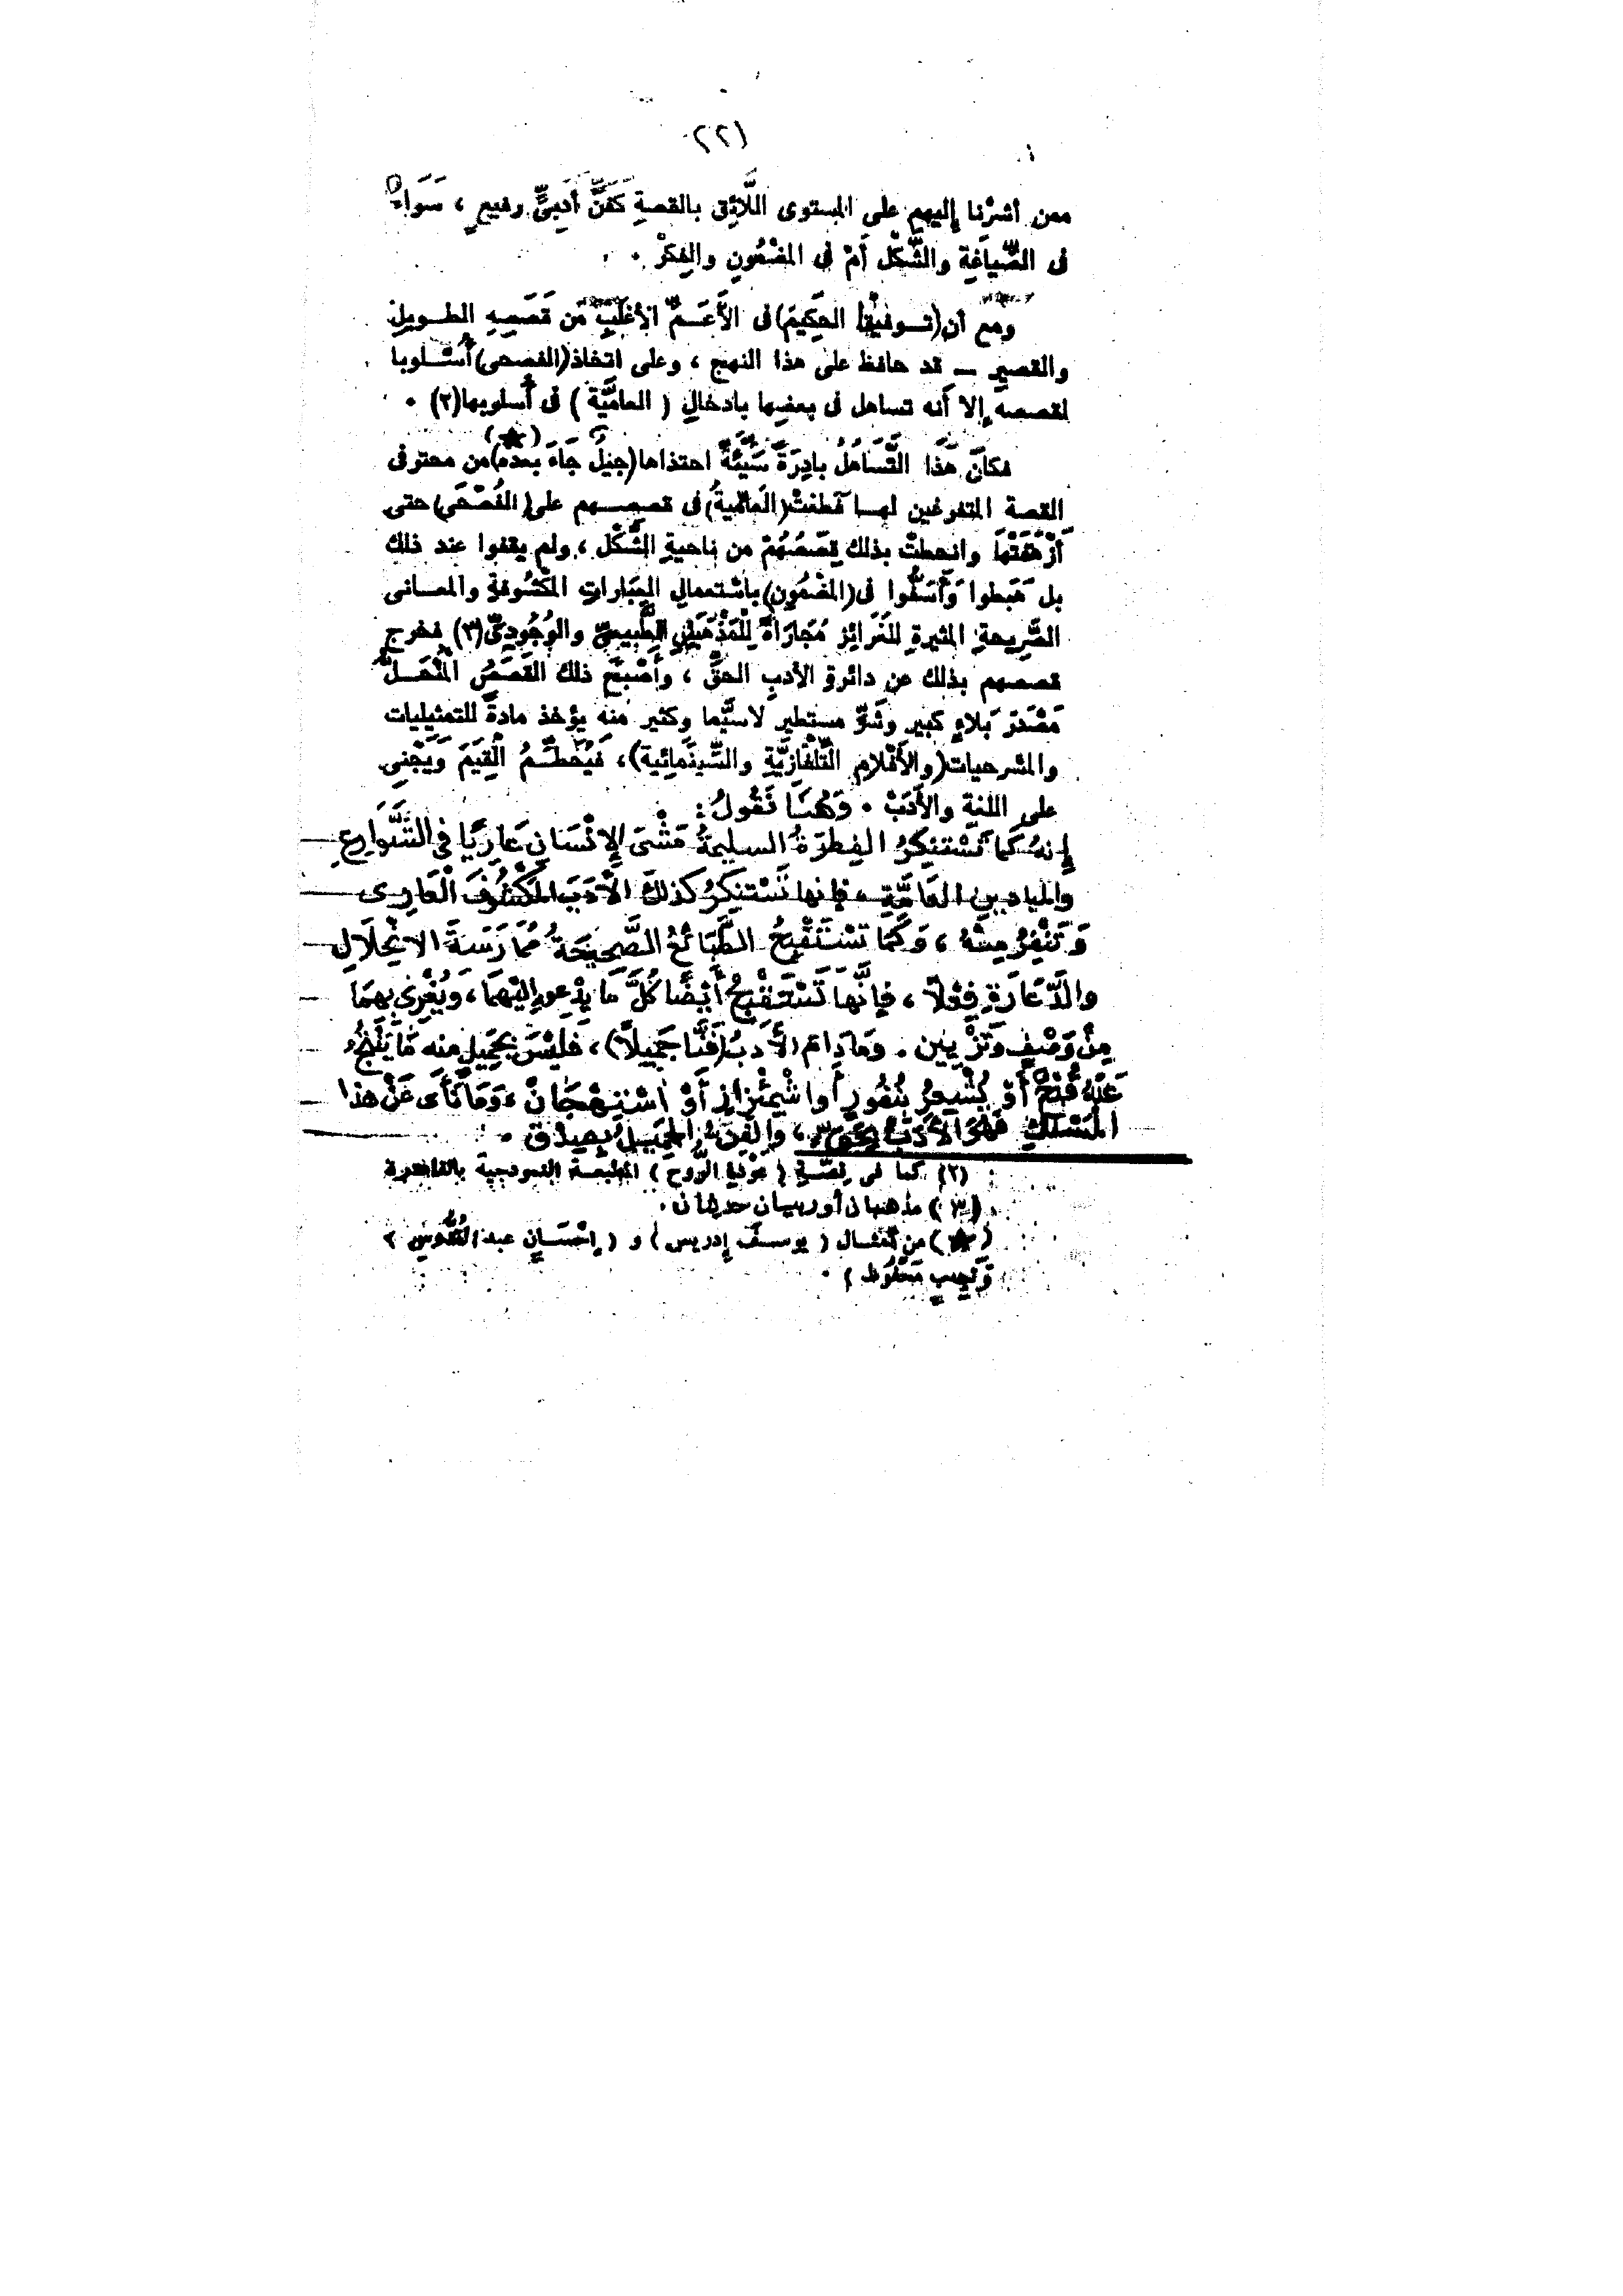 ٢٢١
ممن أشرْنا إليهم على المستوى اللَّائِق بالقصةِ كَفَنٍّ أدبِىٍّ رفيعٍ ، سَوَاءٌ
فى الصِّياغَةِ والشَّكْل أَمْ فى المضْمُونِ والفِكرْ .
ومع أن (تـوفيق الحَكِيم) فى الأَعَـمِّ الأغلَبِ مِن قَصَصِهِ الطـويلِ
والقصيرِ ــ قد حافظ على هذا النهج ، وعلى اتخاذ (الفصحى) أُسْـلوبا
لقصصه إلا أَنه تساهل فى بعضِها بادخالِ ( العاميَّة ) فى أُسلوبها (٢) .
فكانَ هَذَا التَّسَاهلُ بادِرَةً سَيِّئَةً احتذاها (جِيلٌ جَاءَ بعدَه) (★) من محترفى
القصة المتفرغين لهـا فَطغتْ (العَامِّيةُ) فى قصصـهم على (الفُصْحَى) حتى
أزْهَقَتْهَا وانحطتْ بذلك قِصَصُهُمْ من ناحيةِ الشَّكْل ، ولم يقفوا عند ذلك
بل هَبطوا وَأَسَفُّوا فى (المضْمُونِ) باسْتعمالِ العِبَاراتِ المكْشُوفةِ والمعـانى
الصَّرِيحةِ المثيرةِ للغَرَائِز مُجَارَاةً لِلْمَذْهَبَيْنِ الطَّبِيعىِّ والوُجُودِىِّ (٣) فخرج
قصصهم بذلك عن دائرةِ الأدبِ الحقِّ ، وأَصْبَحَ ذلك القَصَصُ المُنْحَـلُّ
مَصْدَرَ بَلاءٍ كبيرٍ وشَرٍّ مستطيرٍ لاسيَّما وكثير منه يؤخذ مادةً للتمثيليات
والمسْرحيات (والأَفْلامِ التِّلْفَازِيَّةِ والسِّينَمَائِية) ، فَيُحَطِّـمُ الْقِيَمَ وَيَجْنِى
على اللغةِ والأَدَبْ . وَهُنَا نَقُولُ :
إِنهُ كَمَا تَسْتنكِرُ الفِطرَةُ السليمةُ مَشْىَ الإِنْسَانِ عَارِيًا فى الشَّوارِعِ
والميادينِ العَامَّةِ ، فإنها تَسْتنكِرُ كذلكَ الأَدَبَ المكْشُوفَ الْعَارِى
وَتَنْفِرُ مِنْهُ ، وَكَمَا تَسْتَقْبِحُ الطَّبَائعُ الصَّحِيحَةُ مُمَارَسَةَ الانْحِلَالِ
والدَّعَارَةِ فِعْلاً ، فإِنَّهَا تَسْتَقْبِحُ أَيْضًا كُلَّ مَا يَدْعو إِليْهمَا ، وَيُغْرِى بِهِمَا
مِنْ وَصْفٍ وَتَزْيينٍ . ومَادَامَ الأَدَبُ (فَنًّا جَمِيلاً) ، فَليْسَ بِجَمِيلٍ منه مَا يَنْتِجُ
عَنْهُ قُبْحٌ أَوْ يُشْعِرُ بنُفُورٍ أَو اشْمِئْزازٍ أَوْ اسْتِهْجَانْ ، وَمَا نَأَى عَنْ هذا
المَسْلَكِ فَهُوَ الأَدَبُ بِحَقٍّ ، والفَنُّ الجَمِيلُ بِصِدْق .
(٢) كما فى قصَّـةِ ( عوْدَةِ الرُّوح ) المطبعـة النموذجية بالقاهرة
(٣) مذهبان أوربيان حديثان .
(★) من أمثـال ( يوسـف إدريس ) و ( إحْسَـانِ عبد القُدُّوسِ )
وَنجِيبِ مَحْفُوظ ) .